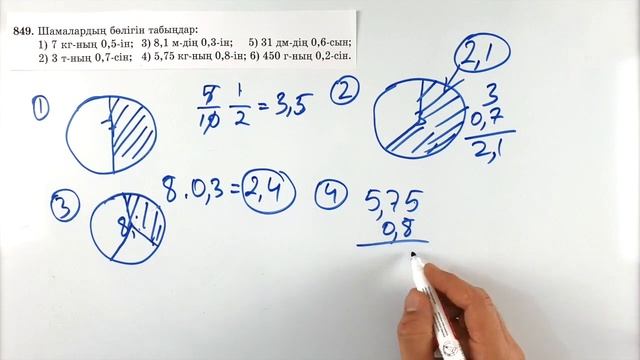 849. Шамалардың бөлігін табыңдар:
1) 7 кг-ның 0,5-ін; 3) 8,1 м-дің 0,3-ін; 5) 31 дм-дің 0,6-сын;
2) 3 т-ның 0,7-сін; 4) 5,75 кг-ның 0,8-ін; 6) 450 г-ның 0,2-сін.
1 5/10 1/2 = 3,5
2 2,1
3
0,7
2,1
3 8,1 8 . 0,3 = 2,4
4 5,75
0,8